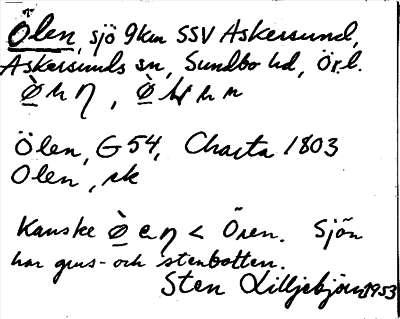 Ölen, sjö 9 km SSV Askersund,
Askersunds sn, Sundbo hd, Ör.l.
Ölen, G 54, Charta 1803
Olen, rk
Kanske < Ören. Sjön
har grus- och stenbotten.
Sten Lilljebjörn 1953